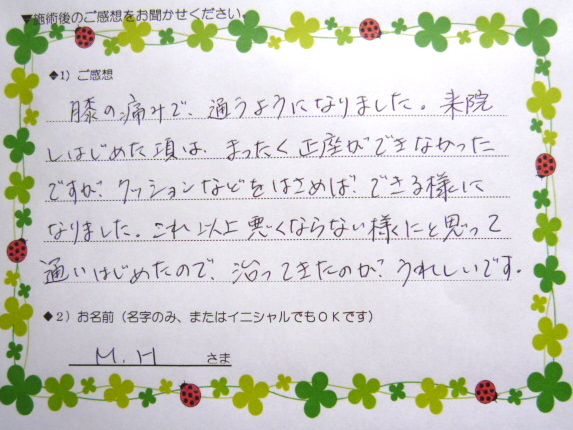 ▼施術後のご感想をお聞かせください。
◆1）ご感想
膝の痛みで、通うようになりました。来院
しはじめた項は、まったく正座ができなかった
ですが、クッションなどをはさめば、できる様に
なりました。これ以上悪くならない様にと思って
通いはじめたので、治ってきたのが、うれしいです。
◆2）お名前（名字のみ、またはイニシャルでもＯＫです）
M.H さま